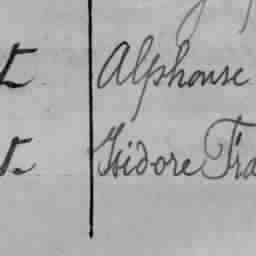 Alphonse
Isidore Fra